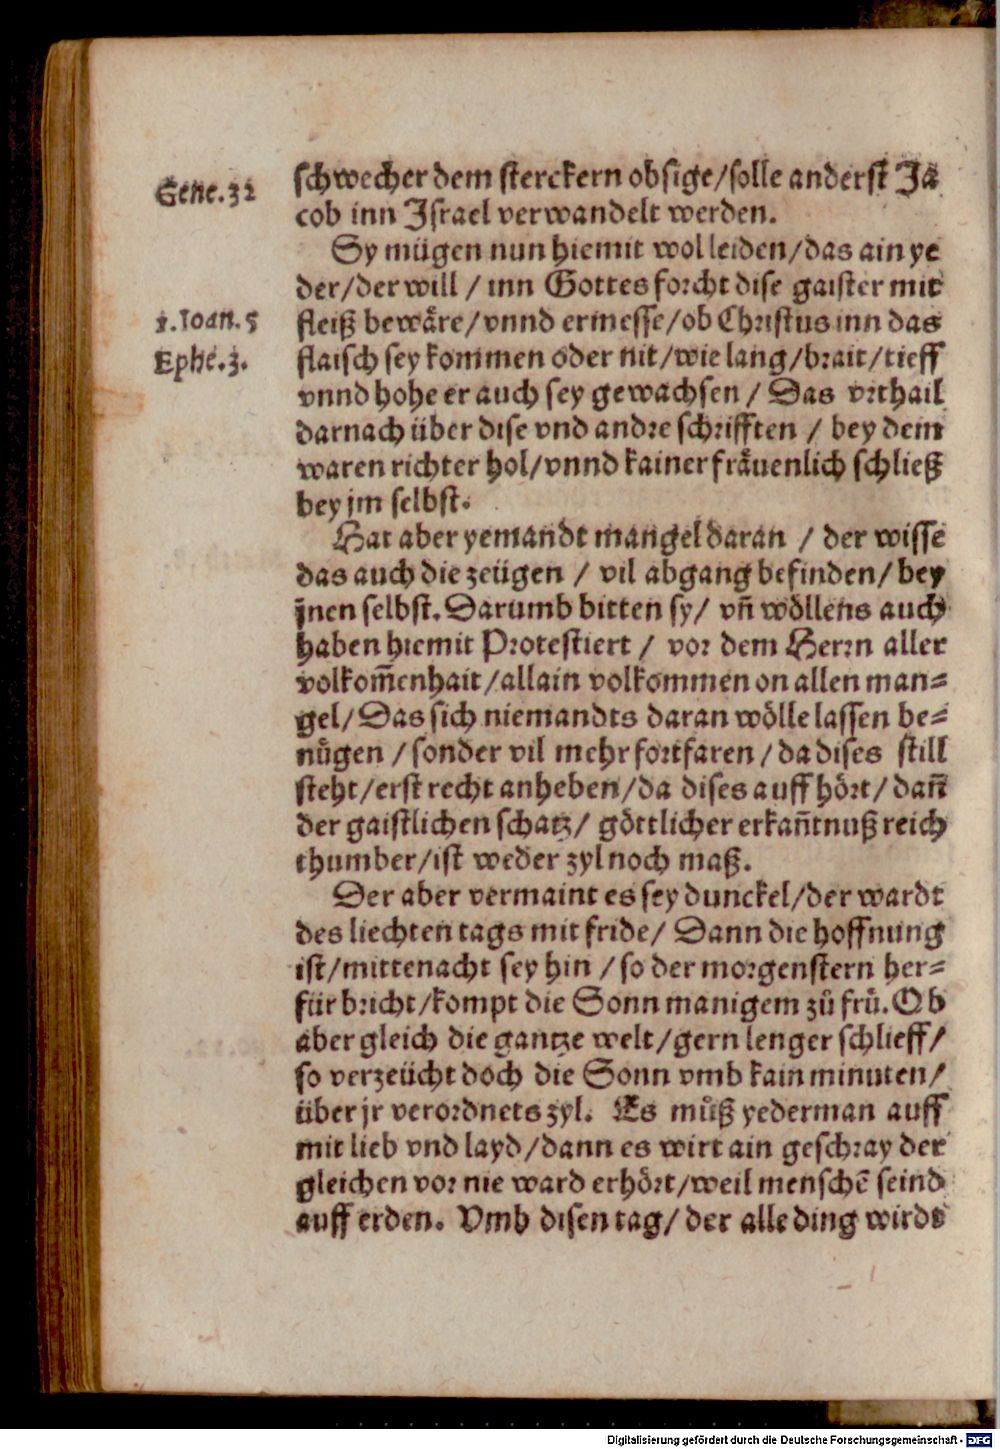 Gene.32
schwecher dem sterckern obsige/solle anderst Ja
cob inn Jsrael verwandelt werden.
Sy mügen nun hiemit wol leiden/das ain ye
der/der will / inn Gottes forcht dise gaister mit
1.Ioan.5
fleiß bewäre/vnnd ermesse/ob Christus inn das
Ephe.3.
flaisch sey kommen oder nit/wie lang/brait/tieff
vnnd hohe er auch sey gewachsen / Das vrthail
darnach über dise vnd andre schrifften / bey dem
waren richter hol/vnnd kainer fräuenlich schließ
bey jm selbst.
Hat aber yemandt mangel daran / der wisse
das auch die zeügen / vil abgang befinden/ bey
jnen selbst. Darumb bitten sy/ vñ wöllens auch
haben hiemit Protestiert / vor dem Herrn aller
volkom̃enhait/allain volkommen on allen man⸗
gel/ Das sich niemandts daran wölle lassen be⸗
nuͤgen / sonder vil mehr fortfaren / da dises still
steht/erst recht anheben/da dises auff hört/ dañ
der gaistlichen schatz/ göttlicher erkañtnuß reich
thumber/ist weder zyl noch maß.
Der aber vermaint es sey dunckel/der wardt
des liechten tags mit fride/ Dann die hoffnung
ist/mittenacht sey hin / so der morgenstern her⸗
für bricht/kompt die Sonn manigem zuͦ fruͤ. Ob
aber gleich die gantze welt/gern lenger schlieff/
so verzeücht doch die Sonn vmb kain minuten/
über jr verordnets zyl. Es muͦß yederman auff
mit lieb vnd layd/dann es wirt ain geschray der
gleichen vor nie ward erhört/weil menschẽ seind
auff erden. Vmb disen tag/ der alle ding wirdt
Digitalisierung gefördert durch die Deutsche Forschungsgemeinschaft - DFG